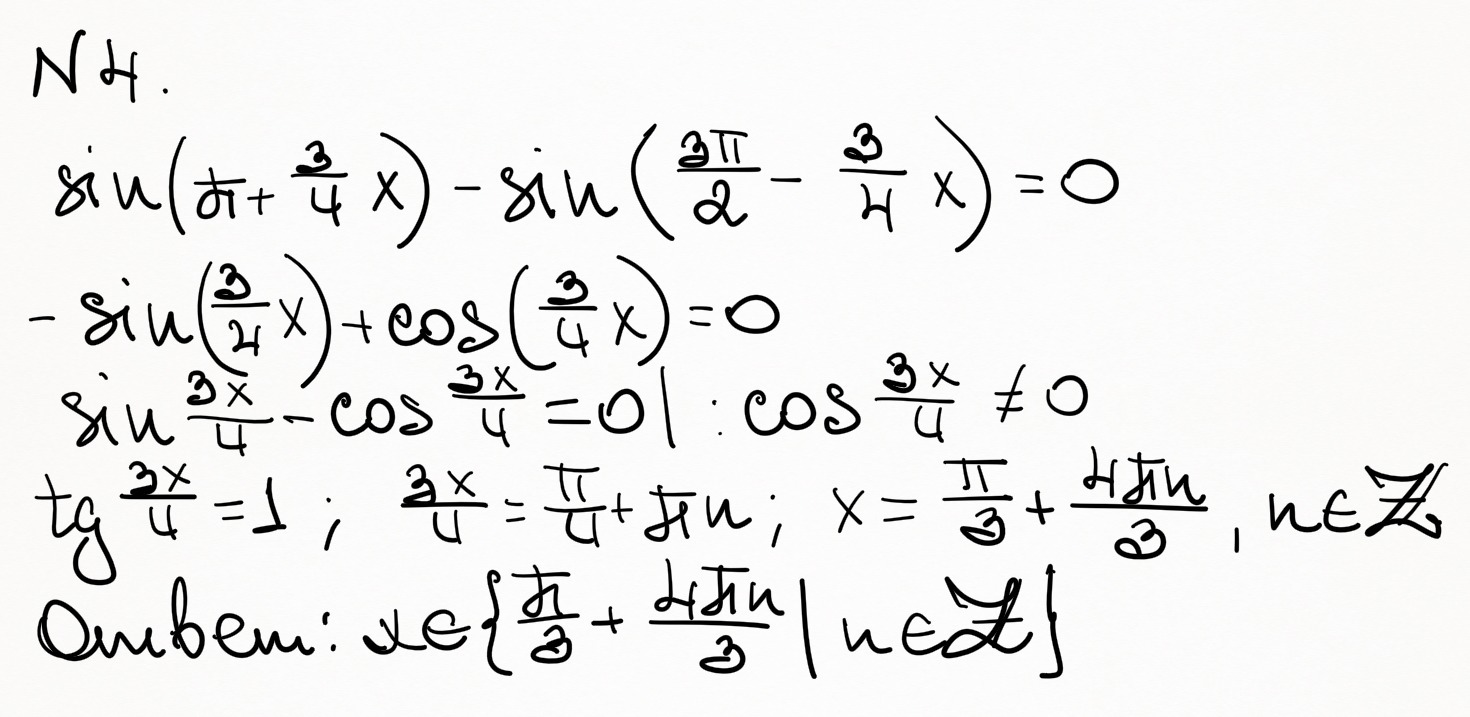 N4.
sin(π + 3/4 x) - sin(3π/2 - 3/4 x) = 0
- sin(3/4 x) + cos(3/4 x) = 0
sin 3x/4 - cos 3x/4 = 0 | : cos 3x/4 ≠ 0
tg 3x/4 = 1 ; 3x/4 = π/4 + πn ; x = π/3 + 4πn/3 , n ∈ ℤ
Ответ: x ∈ {π/3 + 4πn/3 | n ∈ ℤ}